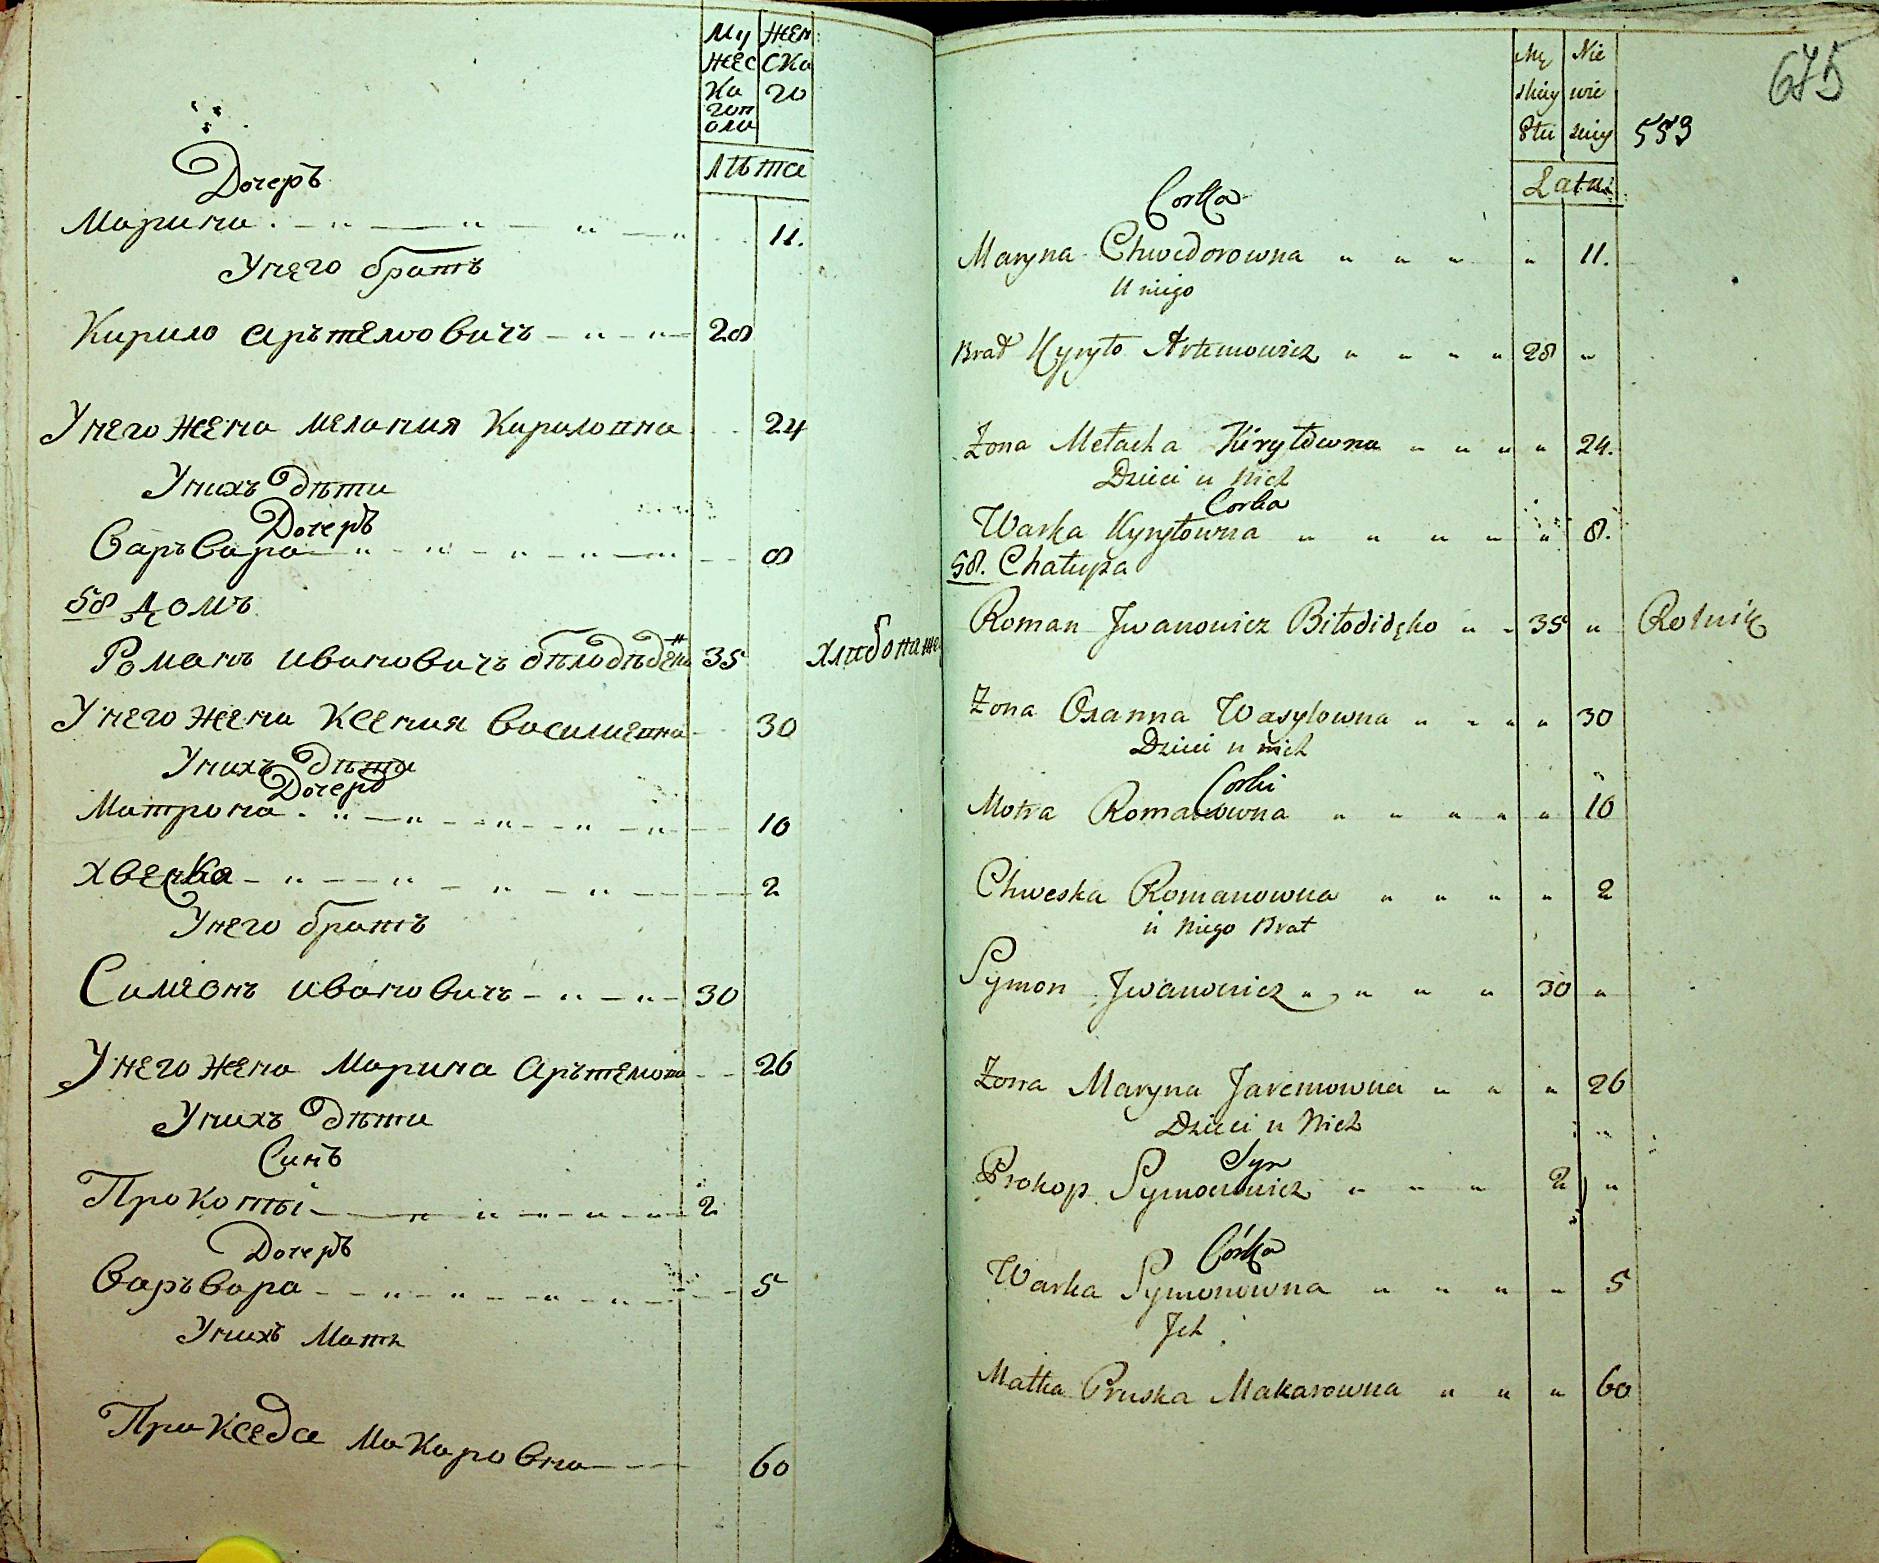 Му жес ка гоп оли
Жен ска го
Лѣта
Дочеръ
Марина 11.
Унего братъ
Кирило Арътемовичъ 28
Унего жена Мелания Кириловна 24
Унихъ дѣти
Дочеръ
Варъвара 8
58 Домъ
Романъ Ивановичъ Бѣлодѣд 35
Унего жена Ксения Василиевна 30
Унихъ дѣти
Дочеръ
Матрона 10
Хвеска 2
Унего братъ
Симеонъ Ивановичъ 30
Унего жена Марина Арътемовна 26
Унихъ дѣти
Синъ
Прокопъ 2
Дочеръ
Варъвара 5
Унихъ Мать
Пракседа Макаровна 60
675
Mę skiey Płci
Nie wie sciey
553
Lata
Corka
Maryna Chwedorowna 11.
U niego
Brat Kyryło Artemowicz 28
Zona Mełacha Kiryłowna 24.
Dzieci u nich
Corka
Warka Kyryłowna 8.
58. Chałupa
Roman Jwanowicz Biłodidęko 35 Rolnik
Zona Oxanna Wasylowna 30
Dzieci u nich
Corki
Motra Romanowna 10
Chweska Romanowna 2
u Niego Brat
Symon Jwanowicz 30
Zona Maryna Jaremowna 26
Dzieci u Nich
Syn
Prokop Symonowicz 2
Córka
Warka Symonowna 5
Jch
Matka Pruska Makarowna 60